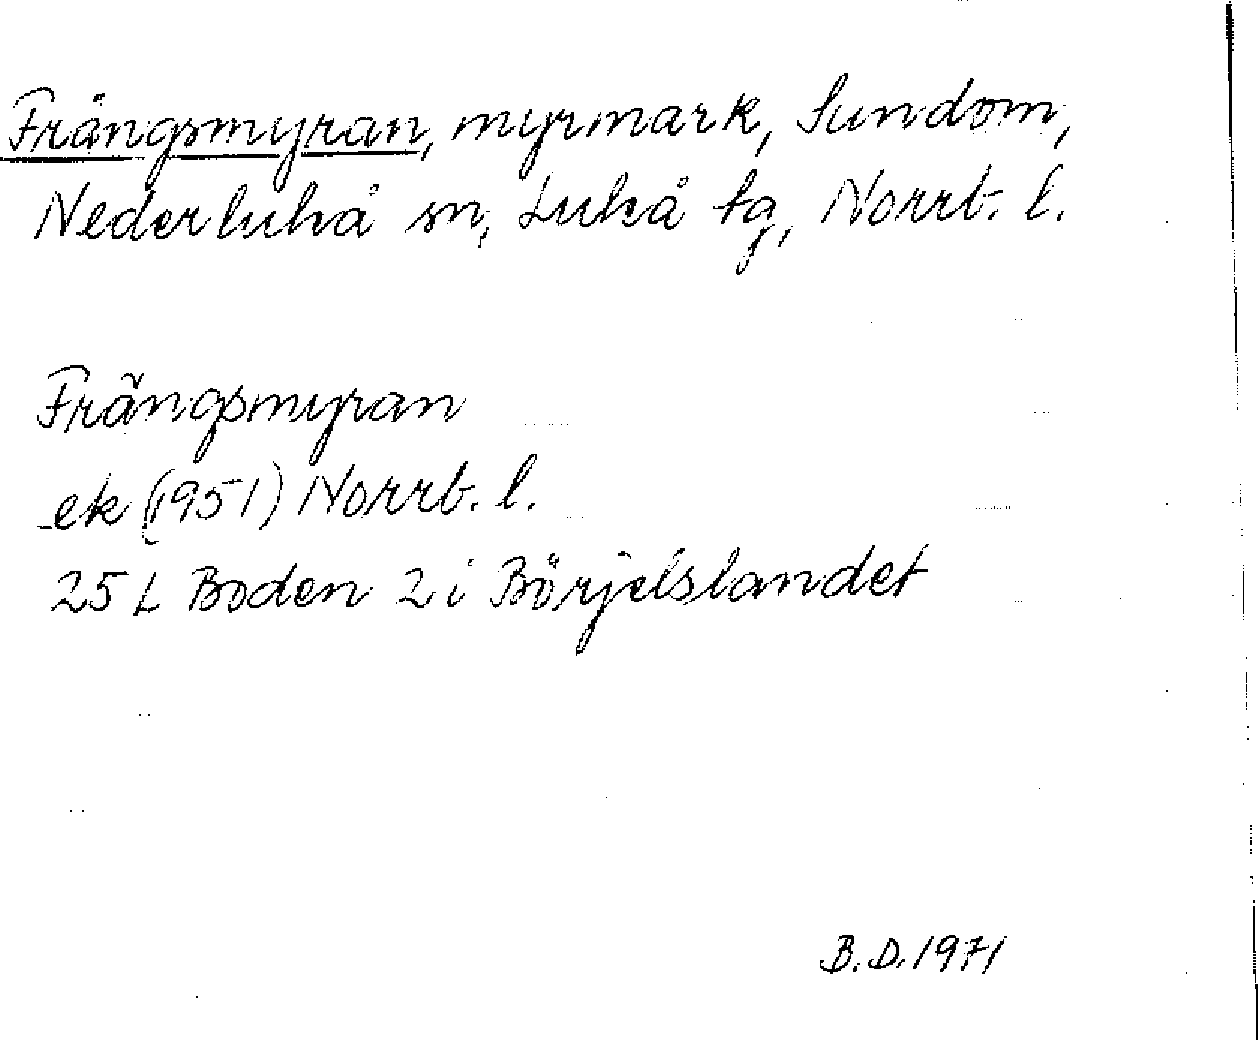 Frängsmyran, myrmark, Sundom,
Nederluleå sn, Luleå tg, Norrb. l.
Frängsmyran
ek (1951) Norrb. l.
25 L Boden 2 i Börjelslandet
B.D. 1971